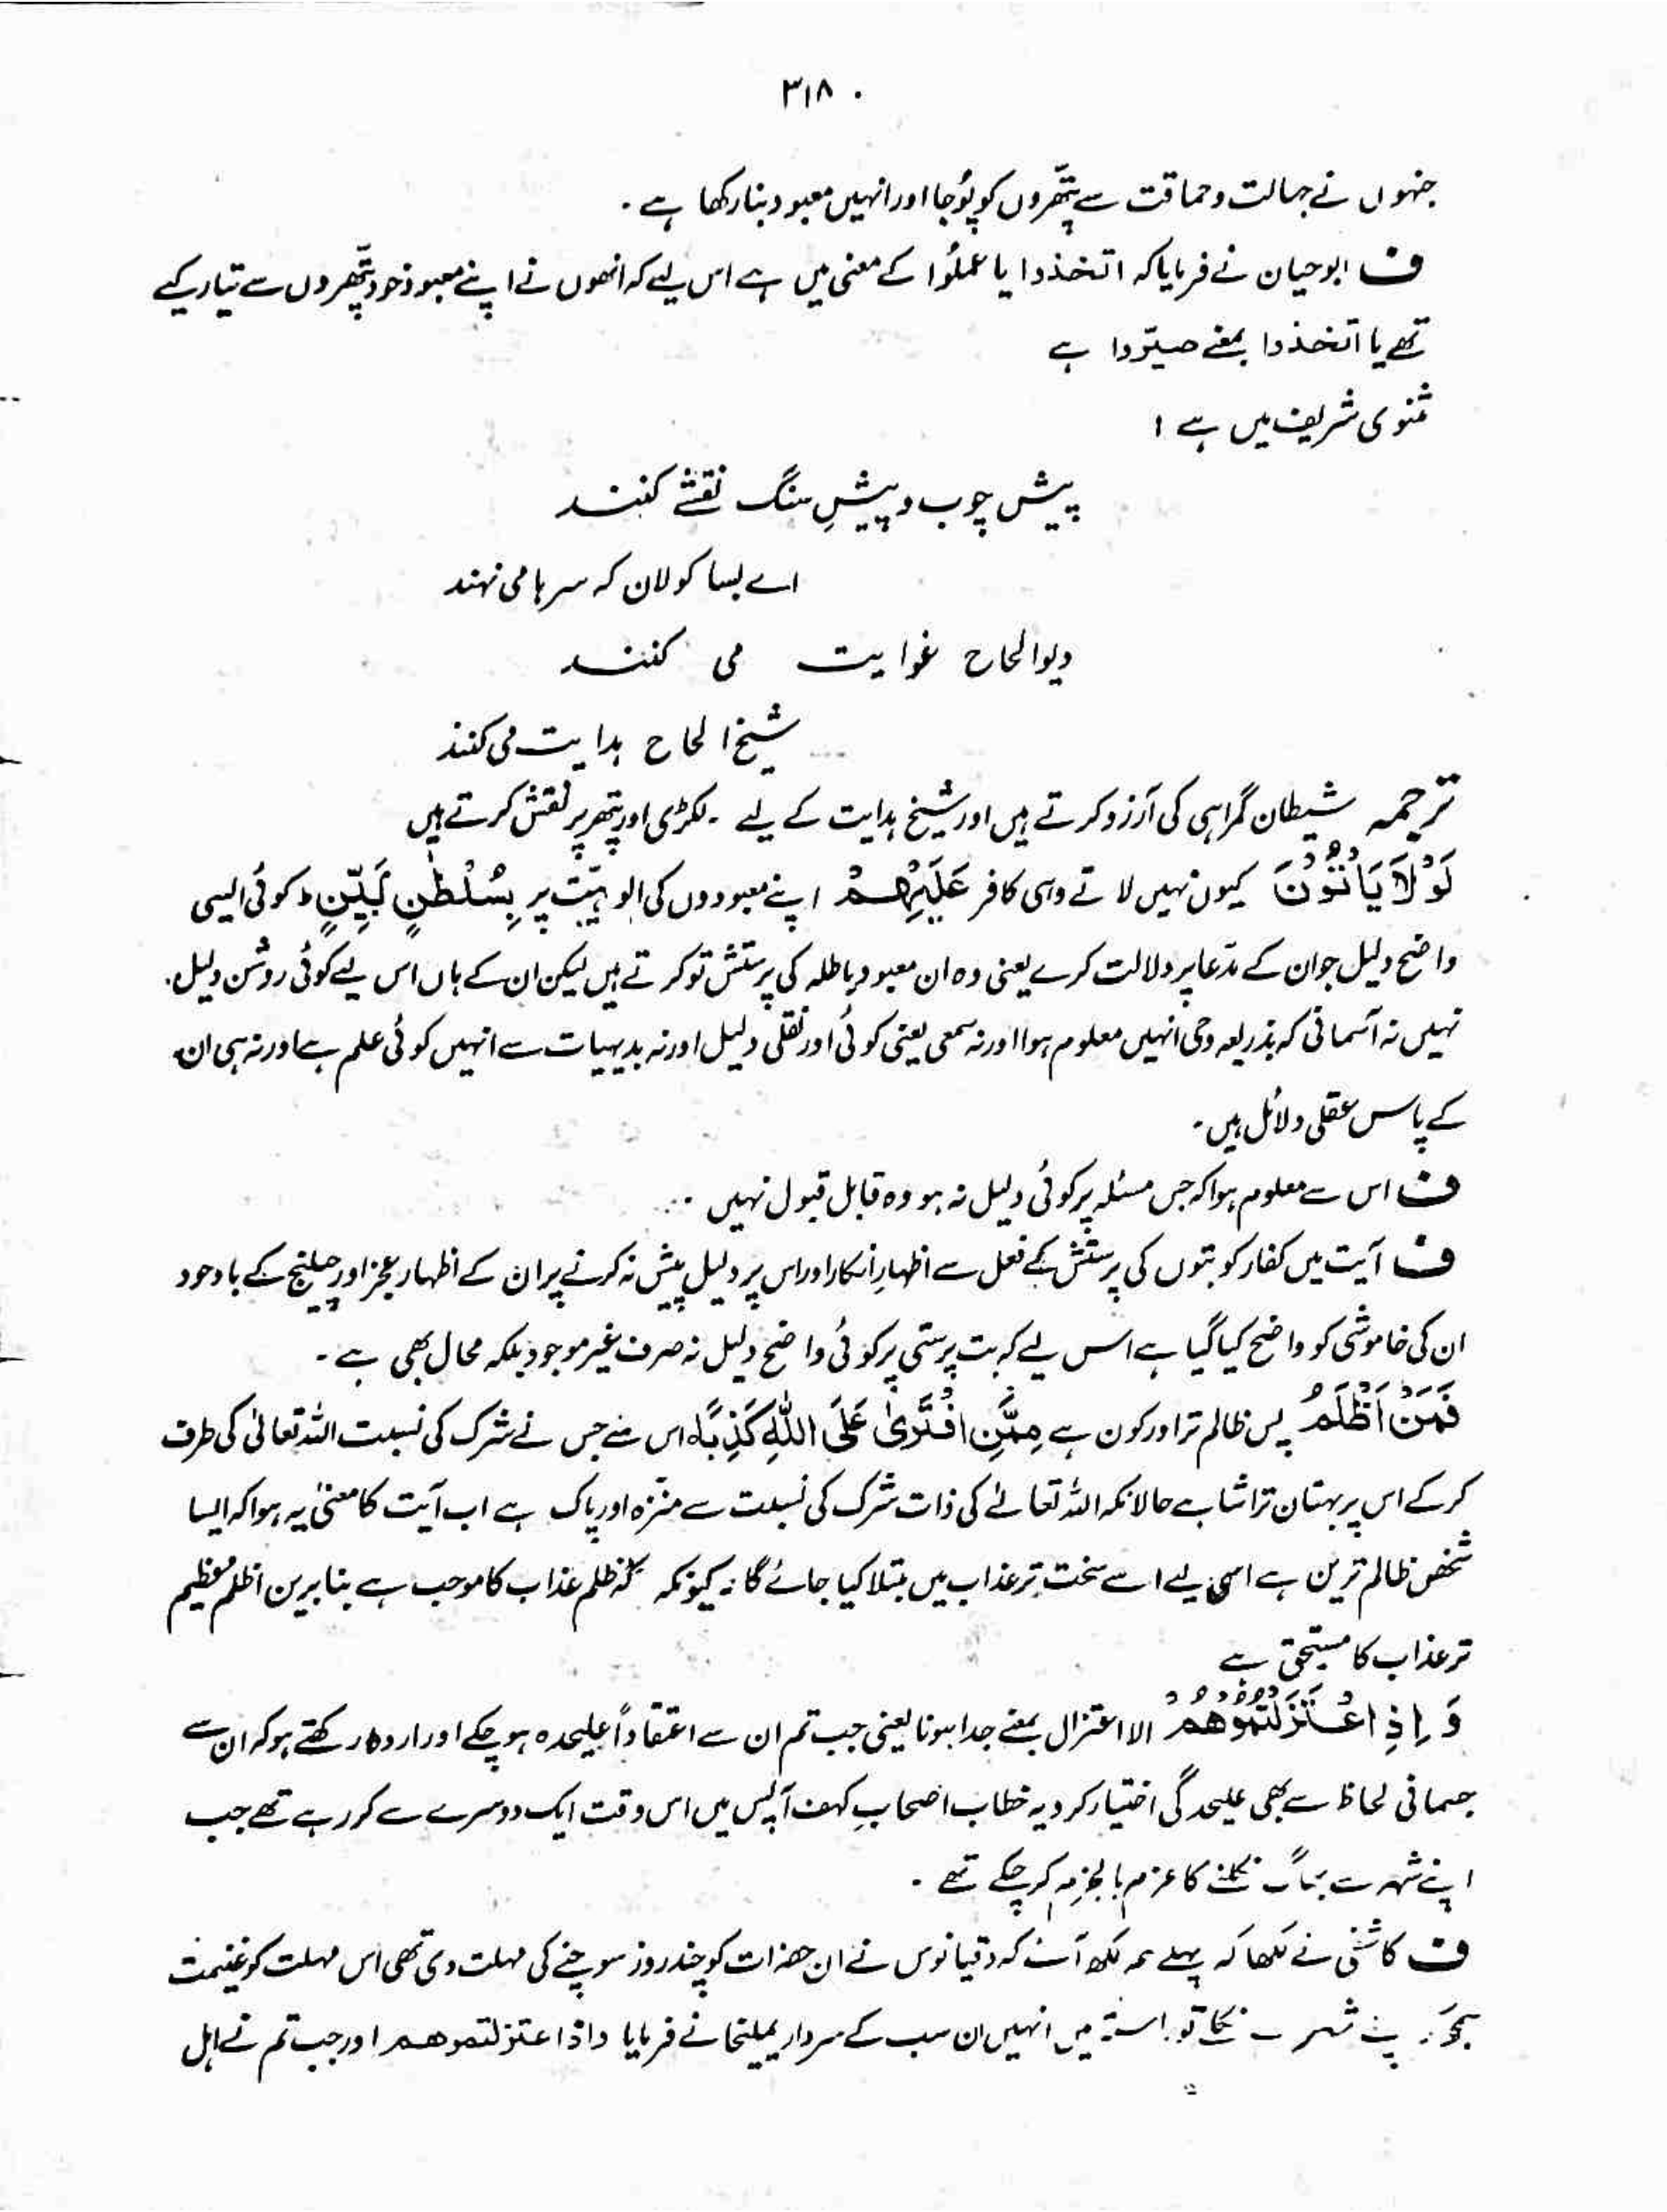 ۳۱۸
جنہوں نے جہالت و حماقت سے پتّھروں کو پُوجا اور انہیں معبود بنا رکھا ہے ۔
ف ابوحیان نے فرمایا کہ اتخذوا یا عملُوا کے معنی میں ہے اس لیے کہ انھوں نے اپنے معبود خود پتّھروں سے تیار کیے
تھے یا اتخذوا بمعنے صیّروا ہے
مثنوی شریف میں ہے ؛
پیش چوب و پیشِ سنگ نقشے کنند
اے بسا کولان کہ سرہا می نہند
دیو الحاح غوایت می کنند
شیخ الحاح ہدایت می کنند
ترجمہ شیطان گمراہی کی آرزو کرتے ہیں اور شیخ ہدایت کے لیے ۔ لکڑی اور پتھر پر نقش کرتے ہیں
لَوْلَا يَاْتُوْنَ کیوں نہیں لاتے وہی کافر عَلَيْهِمْ اپنے معبودوں کی الوہیّت پر بِسُلْطٰنٍ بَيِّنٍ ط کوئی ایسی
واضح دلیل جو ان کے مدّعا پر دلالت کرے یعنی وہ ان معبود باطلہ کی پرستش تو کرتے ہیں لیکن ان کے ہاں اس لیے کوئی روشن دلیل
نہیں نہ آسمانی کہ بذریعہ وحی انہیں معلوم ہوا اور نہ سمعی یعنی کوئی اور نقلی دلیل اور نہ بدیہیات سے انہیں کوئی علم ہے اور نہ ہی ان
کے پاس عقلی دلائل ہیں ۔
ف اس سے معلوم ہوا کہ جس مسئلہ پر کوئی دلیل نہ ہو وہ قابل قبول نہیں ۔
ف آیت میں کفار کو بتوں کی پرستش کے فعل سے اظہارِ انکار اور اس پر دلیل پیش نہ کرنے پر ان کے اظہار عجز اور چیلنج کے باوجود
ان کی خاموشی کو واضح کیا گیا ہے اس لیے کہ بت پرستی پر کوئی واضح دلیل نہ صرف غیر موجود بلکہ محال بھی ہے ۔
فَمَنْ اَظْلَمُ پس ظالم تر اور کون ہے مِمَّنِ افْتَرٰى عَلَى اللّٰهِ كَذِبًا ۵ اس سے جس نے شرک کی نسبت اللہ تعالیٰ کی طرف
کر کے اس پر بہتان تراشا ہے حالانکہ اللہ تعالےٰ کی ذات شرک کی نسبت سے منزہ اور پاک ہے اب آیت کا معنیٰ یہ ہوا کہ ایسا
شخص ظالم ترین ہے اسی لیے اسے سخت تر عذاب میں مبتلا کیا جائے گا کیونکہ ظلم عذاب کا موجب ہے بنابریں اظلم عظیم
تر عذاب کا مستحق ہے
وَ اِذِ اعْتَزَلْتُمُوْهُمْ الاعتزال بمعنے جدا ہونا یعنی جب تم ان سے اعتقاداً علیحدہ ہو چکے اور ارادہ رکھتے ہو کہ ان سے
جسمانی لحاظ سے بھی علیحدگی اختیار کرو یہ خطاب اصحابِ کہف آپس میں اس وقت ایک دوسرے سے کر رہے تھے جب
اپنے شہر سے بھاگ نکلنے کا عزم بالجزم کر چکے تھے ۔
ف کاشفی نے لکھا کہ پہلے ہم لکھ آئے کہ دقیانوس نے ان حضرات کو چند روز سوچنے کی مہلت دی تھی اس مہلت کو غنیمت
شہر سے نکلے تو راستہ میں انہیں ان سب کے سردار یملیخا نے فرمایا واذاعتزلتموھم اور جب تم نے اہل